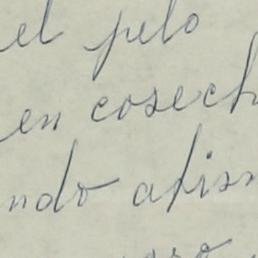 el pelo
en cosech
ndo afis